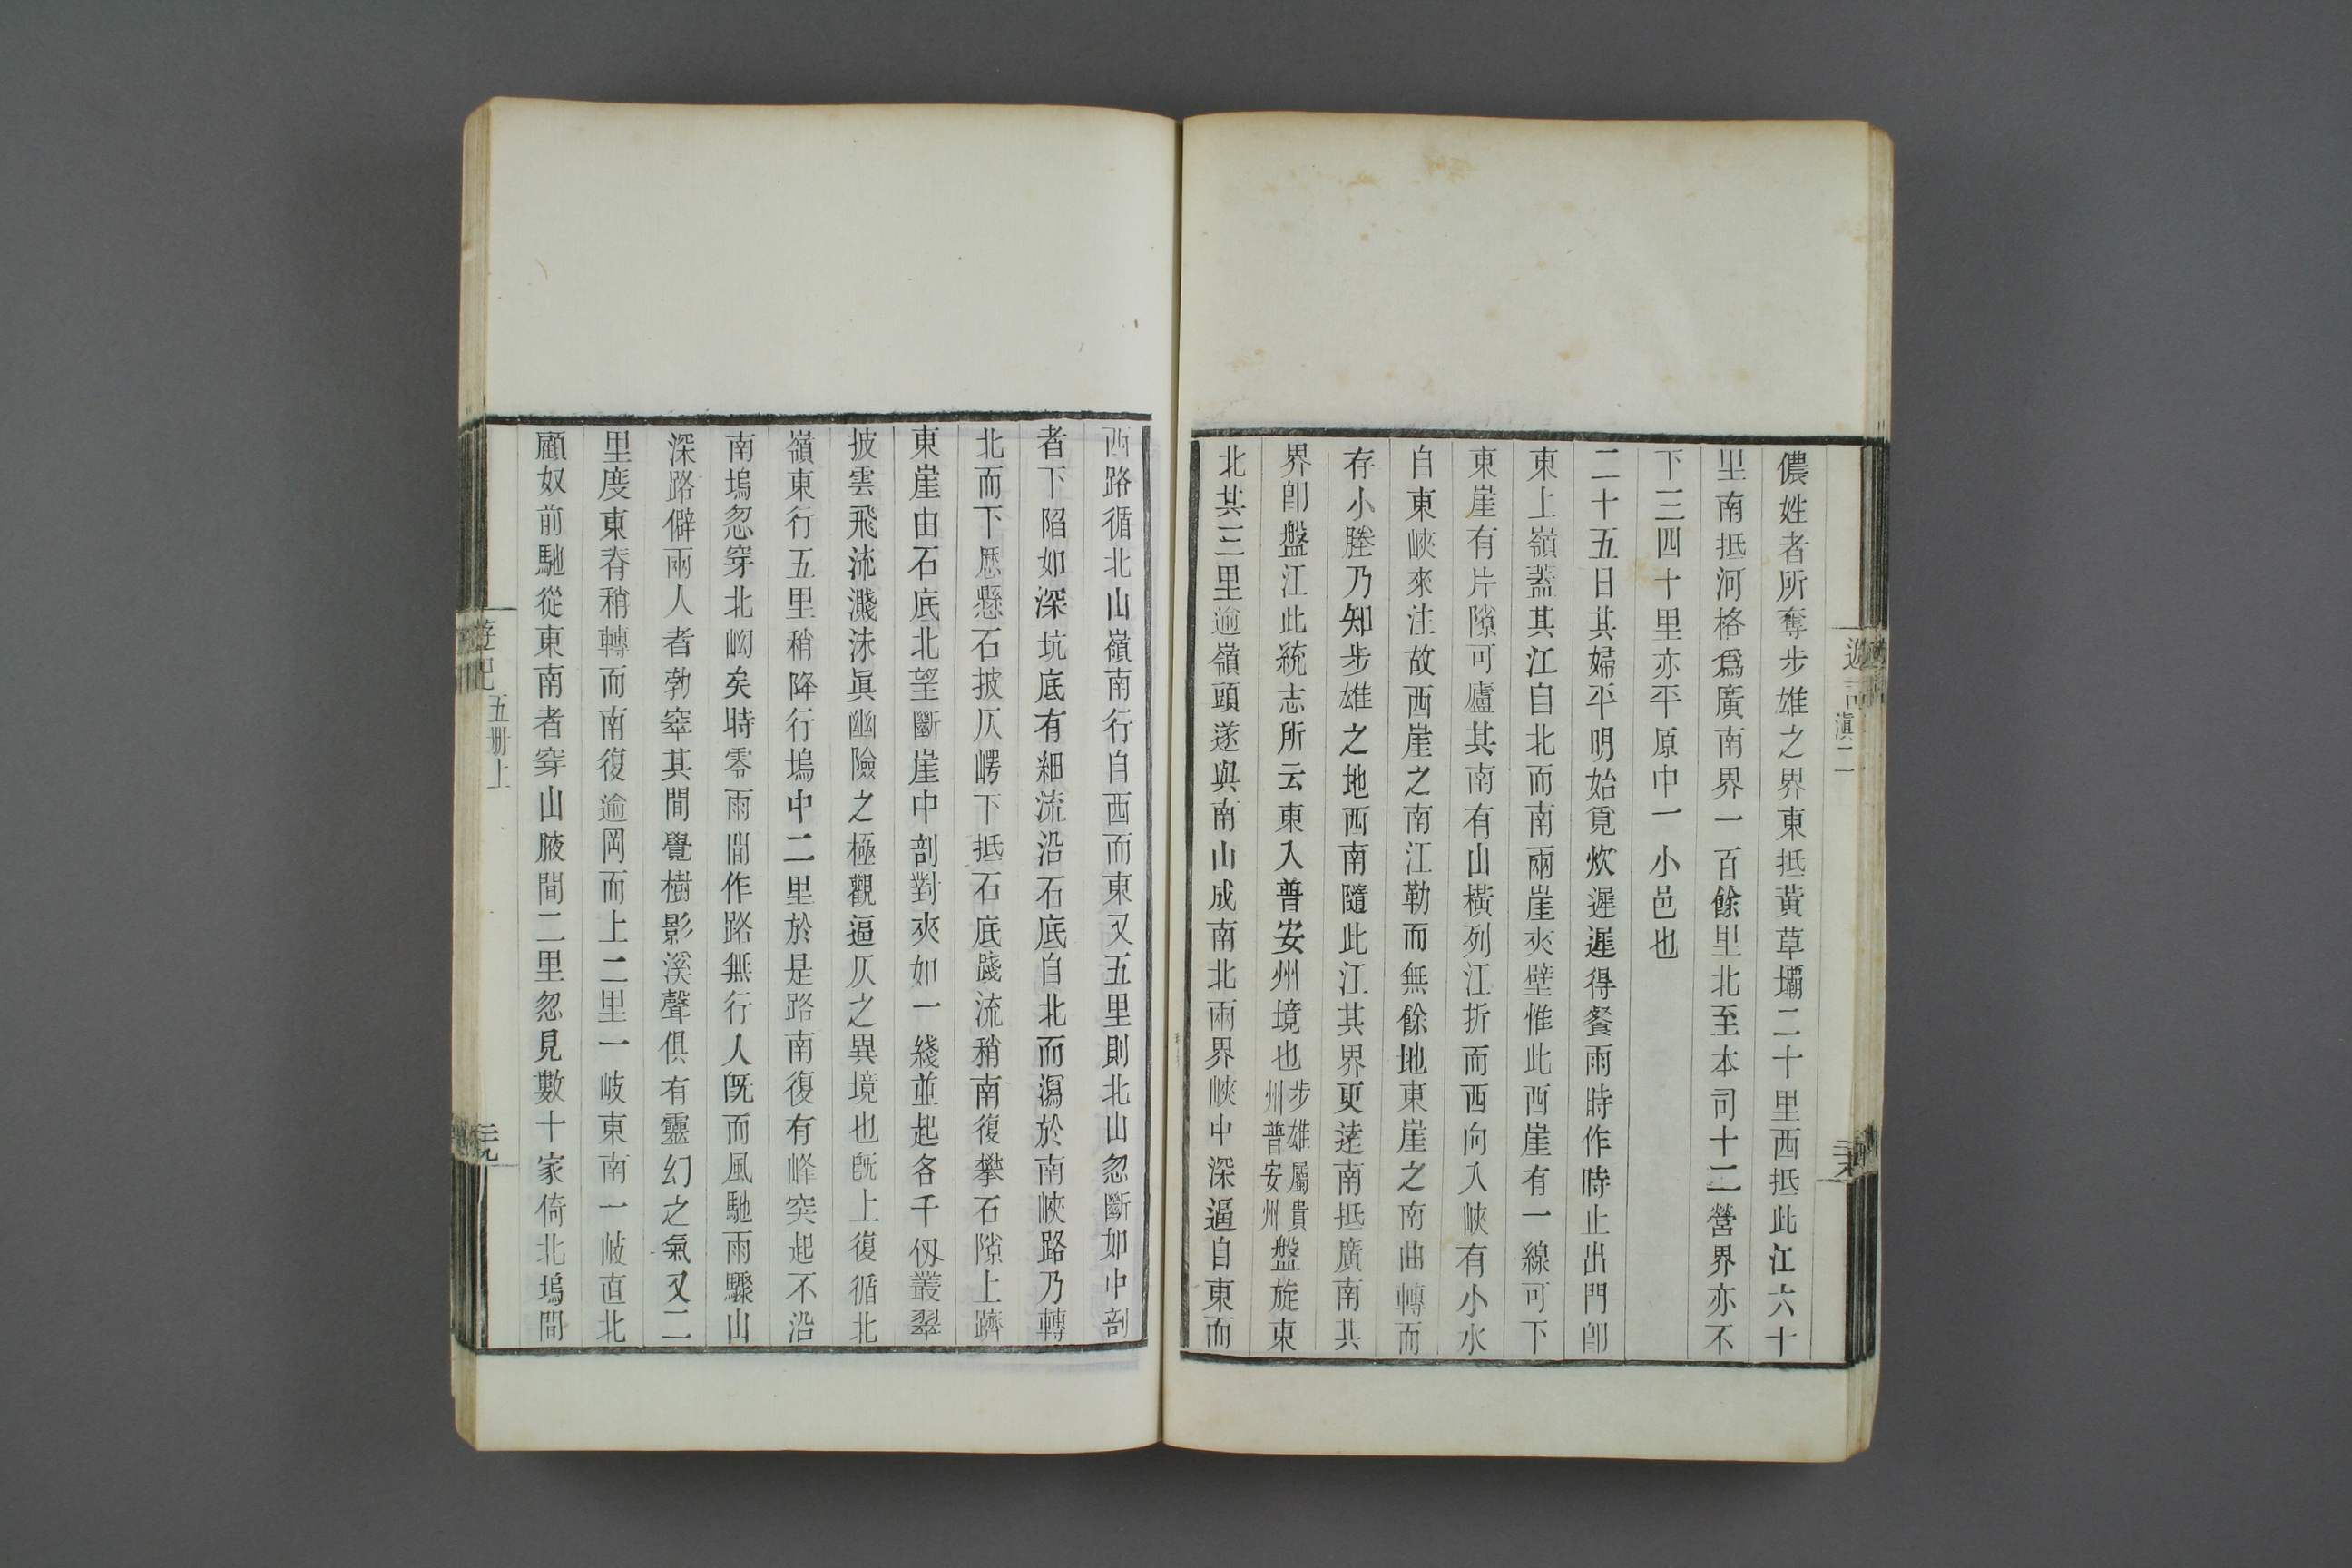 遊記 滇二
儂姓者所奪步雄之界東抵黃草壩二十里西抵此江六十
里南抵河格爲廣南界一百餘里北至本司十二營界亦不
下三四十里亦平原中一小邑也
二十五日其婦平明始覓炊遲遲得餐雨時作時止出門卽
東上嶺蓋其江自北而南兩崖夾壁惟此西崖有一線可下
東崖有片隙可廬其南有山橫列江折而西向入峽有小水
自東峽來注故西崖之南江勒而無餘地東崖之南曲轉而
存小塍乃知步雄之地西南隨此江其界更遠南抵廣南共
界卽盤江此統志所云東入普安州境也步雄屬貴州普安州盤旋東
北共三里逾嶺頭遂與南山成南北兩界峽中深逼自東而
西路循北山嶺南行自西而東又五里則北山忽斷如中剖
者下陷如深坑底有細流沿石底自北而瀉於南峽路乃轉
北而下歷懸石披仄崿下抵石底踐流稍南復攀石隙上躋
東崖由石底北望斷崖中剖對夾如一綫並起各千仭叢翠
披雲飛流濺沫眞幽險之極觀逼仄之異境也旣上復循北
嶺東行五里稍降行塢中二里於是路南復有峰突起不沿
南塢忽穿北坳矣時零雨間作路無行人旣而風馳雨驟山
深路僻兩人者勃窣其間覺樹影溪聲俱有靈幻之氣又二
里度東脊稍轉而南復逾岡而上二里一岐東南一岐直北
顧奴前馳從東南者穿山腋間二里忽見數十家倚北塢間
遊記 五册上
三九